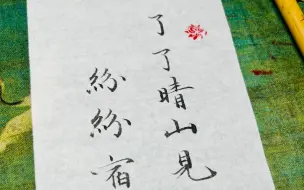 了了晴山見
紛紛宿